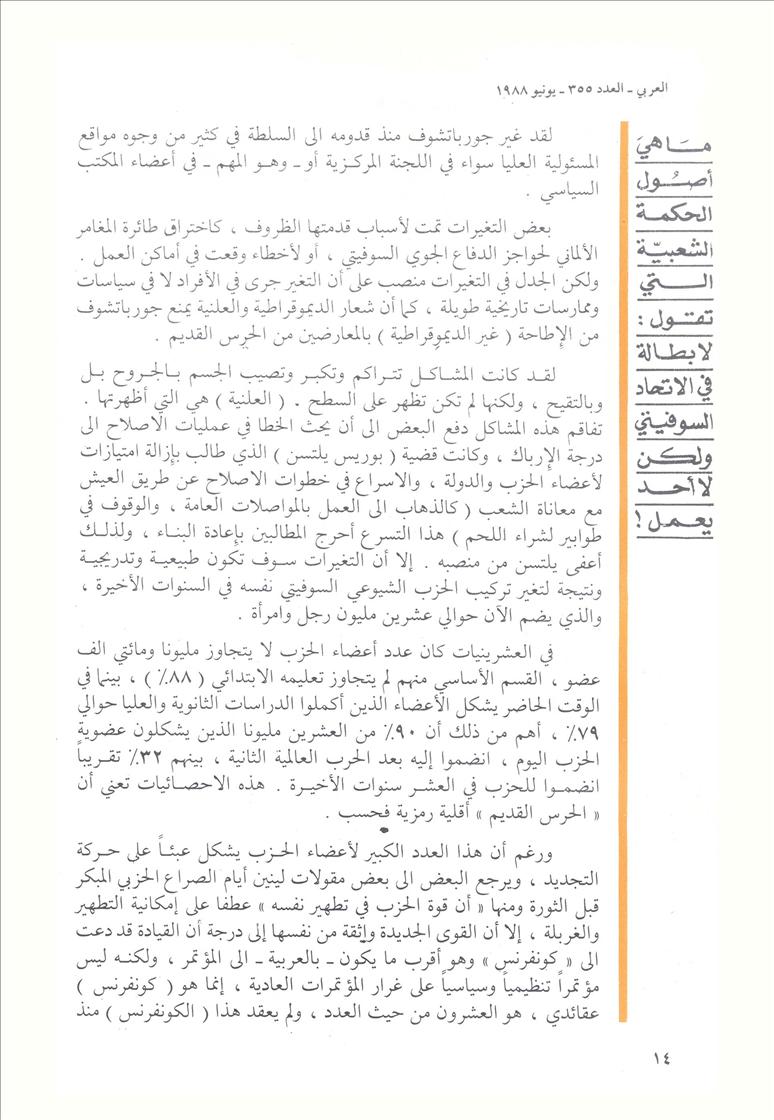 العربي - العدد ٣٥٥ - يونيو ١٩٨٨
ما هي
أصول
الحكمة
الشعبية
التي
تقول :
لا بطالة
في الاتحاد
السوفيتي
ولكن
لا أحد
يعمل !
لقد غير جورباتشوف منذ قدومه الى السلطة في كثير من وجوه مواقع
المسئولية العليا سواء في اللجنة المركزية أو - وهو المهم - في أعضاء المكتب
السياسي .
بعض التغيرات تمت لأسباب قدمتها الظروف ، كاختراق طائرة المغامر
الألماني لحواجز الدفاع الجوي السوفيتي ، أو لأخطاء وقعت في أماكن العمل .
ولكن الجدل في التغيرات منصب على أن التغير جرى في الأفراد لا في سياسات
وممارسات تاريخية طويلة ، كما أن شعار الديموقراطية والعلنية يمنع جورباتشوف
من الإطاحة ( غير الديموقراطية ) بالمعارضين من الحرس القديم .
لقد كانت المشاكل تتراكم وتكبر وتصيب الجسم بالجروح بل
وبالتقيح ، ولكنها لم تكن تظهر على السطح . ( العلنية ) هي التي أظهرتها .
تفاقم هذه المشاكل دفع البعض الى أن يحث الخطا في عمليات الاصلاح الى
درجة الإرباك ، وكانت قضية ( بوريس يلتسن ) الذي طالب بإزالة امتيازات
لأعضاء الحزب والدولة ، والاسراع في خطوات الاصلاح عن طريق العيش
مع معاناة الشعب ( كالذهاب الى العمل بالمواصلات العامة ، والوقوف في
طوابير لشراء اللحم ) هذا التسرع أحرج المطالبين بإعادة البناء ، ولذلك
أعفى يلتسن من منصبه . إلا أن التغيرات سوف تكون طبيعية وتدريجية
ونتيجة لتغير تركيب الحزب الشيوعي السوفيتي نفسه في السنوات الأخيرة ،
والذي يضم الآن حوالي عشرين مليون رجل وامرأة .
في العشرينيات كان عدد أعضاء الحزب لا يتجاوز مليونا ومائتي الف
عضو ، القسم الأساسي منهم لم يتجاوز تعليمه الابتدائي ( ٨٨٪ ) ، بينما في
الوقت الحاضر يشكل الأعضاء الذين أكملوا الدراسات الثانوية والعليا حوالي
٧٩٪ ، أهم من ذلك أن ٩٠٪ من العشرين مليونا الذين يشكلون عضوية
الحزب اليوم ، انضموا إليه بعد الحرب العالمية الثانية ، بينهم ٣٢٪ تقريباً
انضموا للحزب في العشر سنوات الأخيرة . هذه الاحصائيات تعني أن
« الحرس القديم » أقلية رمزية فحسب .
ورغم أن هذا العدد الكبير لأعضاء الحزب يشكل عبئاً على حركة
التجديد ، ويرجع البعض الى بعض مقولات لينين أيام الصراع الحزبي المبكر
قبل الثورة ومنها « أن قوة الحزب في تطهير نفسه » عطفا على إمكانية التطهير
والغربلة ، إلا أن القوى الجديدة واثقة من نفسها إلى درجة أن القيادة قد دعت
الى « كونفرنس » وهو أقرب ما يكون - بالعربية - الى المؤتمر ، ولكنه ليس
مؤتمراً تنظيمياً وسياسياً على غرار المؤتمرات العادية ، إنما هو ( كونفرنس )
عقائدي ، هو العشرون من حيث العدد ، ولم يعقد هذا ( الكونفرنس ) منذ
١٤